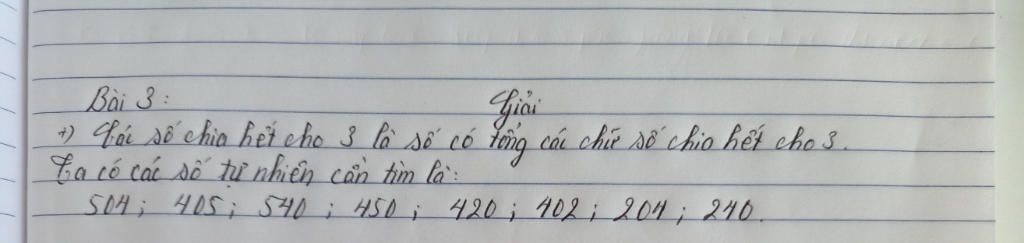 Bài 3: Giải
+) Các số chia hết cho 3 là số có tổng các chữ số chia hết cho 3.
Ta có các số tự nhiên cần tìm là:
504; 405; 540; 450; 420; 402; 204; 240.